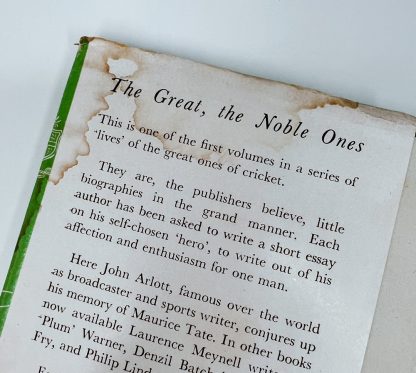 The Great, the Noble Ones
This is one of the first volumes in a series of
'lives' of the great ones of cricket.
They are, the publishers believe, little
biographies in the grand manner. Each
author has been asked to write a short essay
on his self-chosen 'hero', to write out of his
affection and enthusiasm for one man.
Here John Arlott, famous over the world
as broadcaster and sports writer, conjures up
his memory of Maurice Tate. In other books
now available Laurence Meynell
'Plum' Warner, Denzil
Fry, and Philip